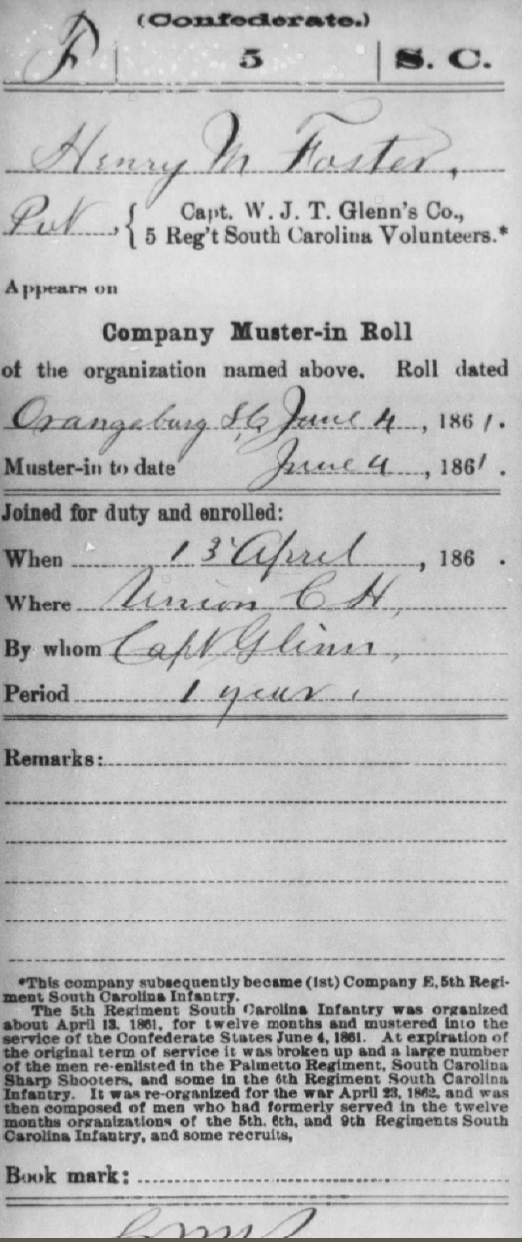 (Confederate.)
F | 5 | S. C.
Henry M Foster,
Pvt, { Capt. W. J. T. Glenn's Co.,
5 Reg't South Carolina Volunteers.*
Appears on
Company Muster-in Roll
of the organization named above. Roll dated
Orangeburg S.C. June 4, 1861.
Muster-in to date June 4, 1861.
Joined for duty and enrolled:
When 13 April, 186 .
Where Union C H,
By whom Capt Glinn,
Period 1 year.
Remarks:
*This company subsequently became (1st) Company E, 5th Regi-
ment South Carolina Infantry.
The 5th Regiment South Carolina Infantry was organized
about April 13, 1861, for twelve months and mustered into the
service of the Confederate States June 4, 1861. At expiration of
the original term of service it was broken up and a large number
of the men re-enlisted in the Palmetto Regiment, South Carolina
Sharp Shooters, and some in the 6th Regiment South Carolina
Infantry. It was re-organized for the war April 23, 1862, and was
then composed of men who had formerly served in the twelve
months organizations of the 5th, 6th, and 9th Regiments South
Carolina Infantry, and some recruits,
Book mark: